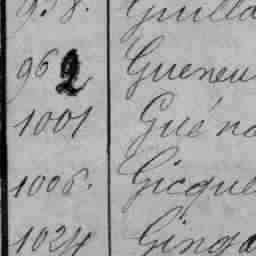 958. Guilla
962 Gueneu
1001 Guéno
1006. Gicque
1024 Ginga